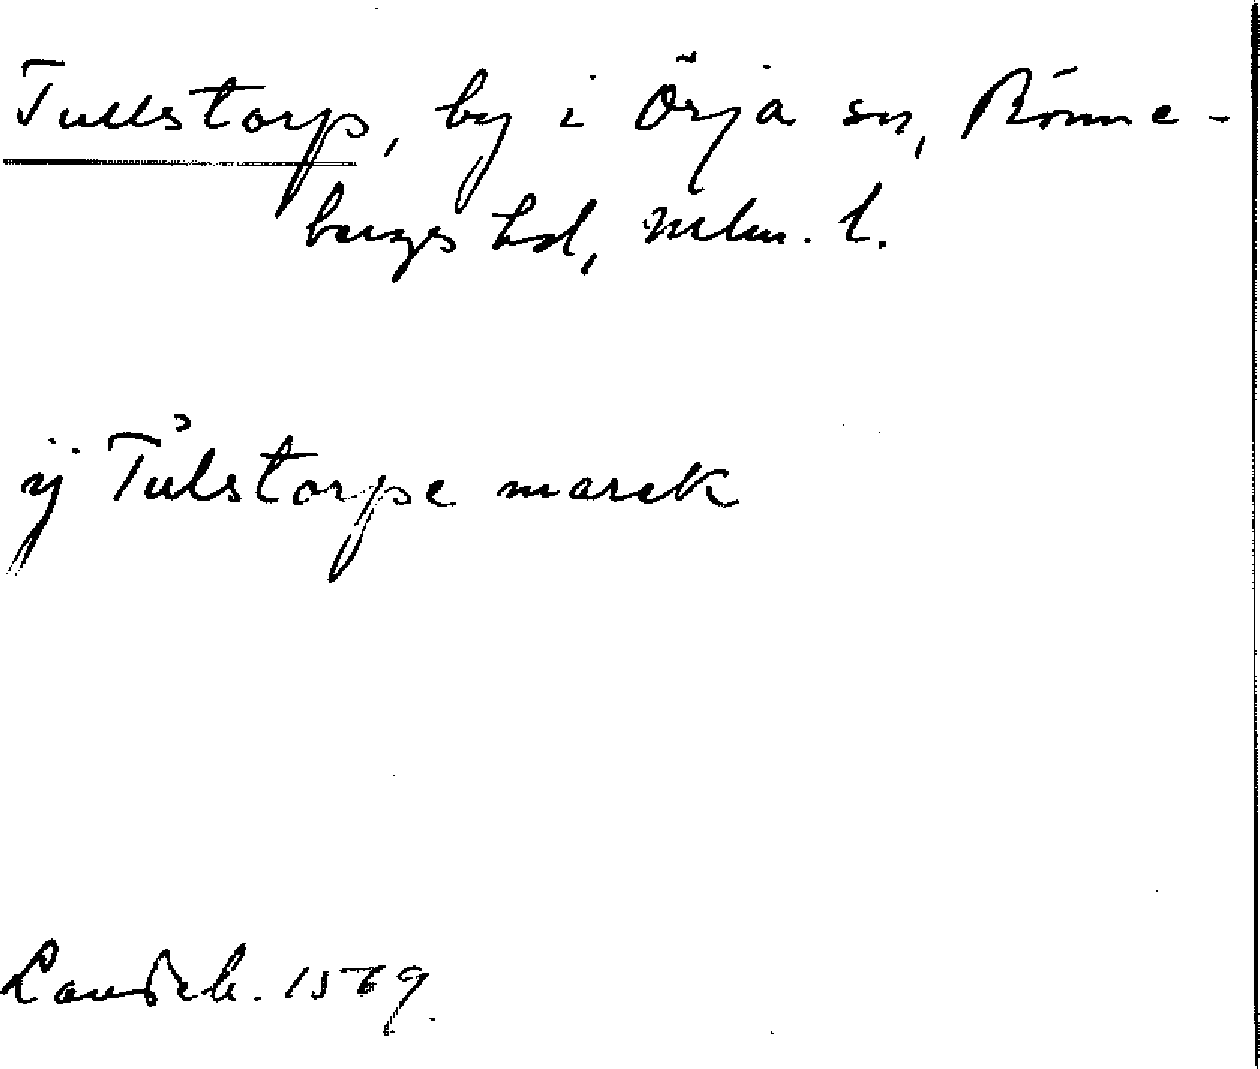 Tullstorp, by i Örja sn, Rönne-
bergs hd, Mlm. l.
ÿ Tulstorpe marck
Landeb. 1569.